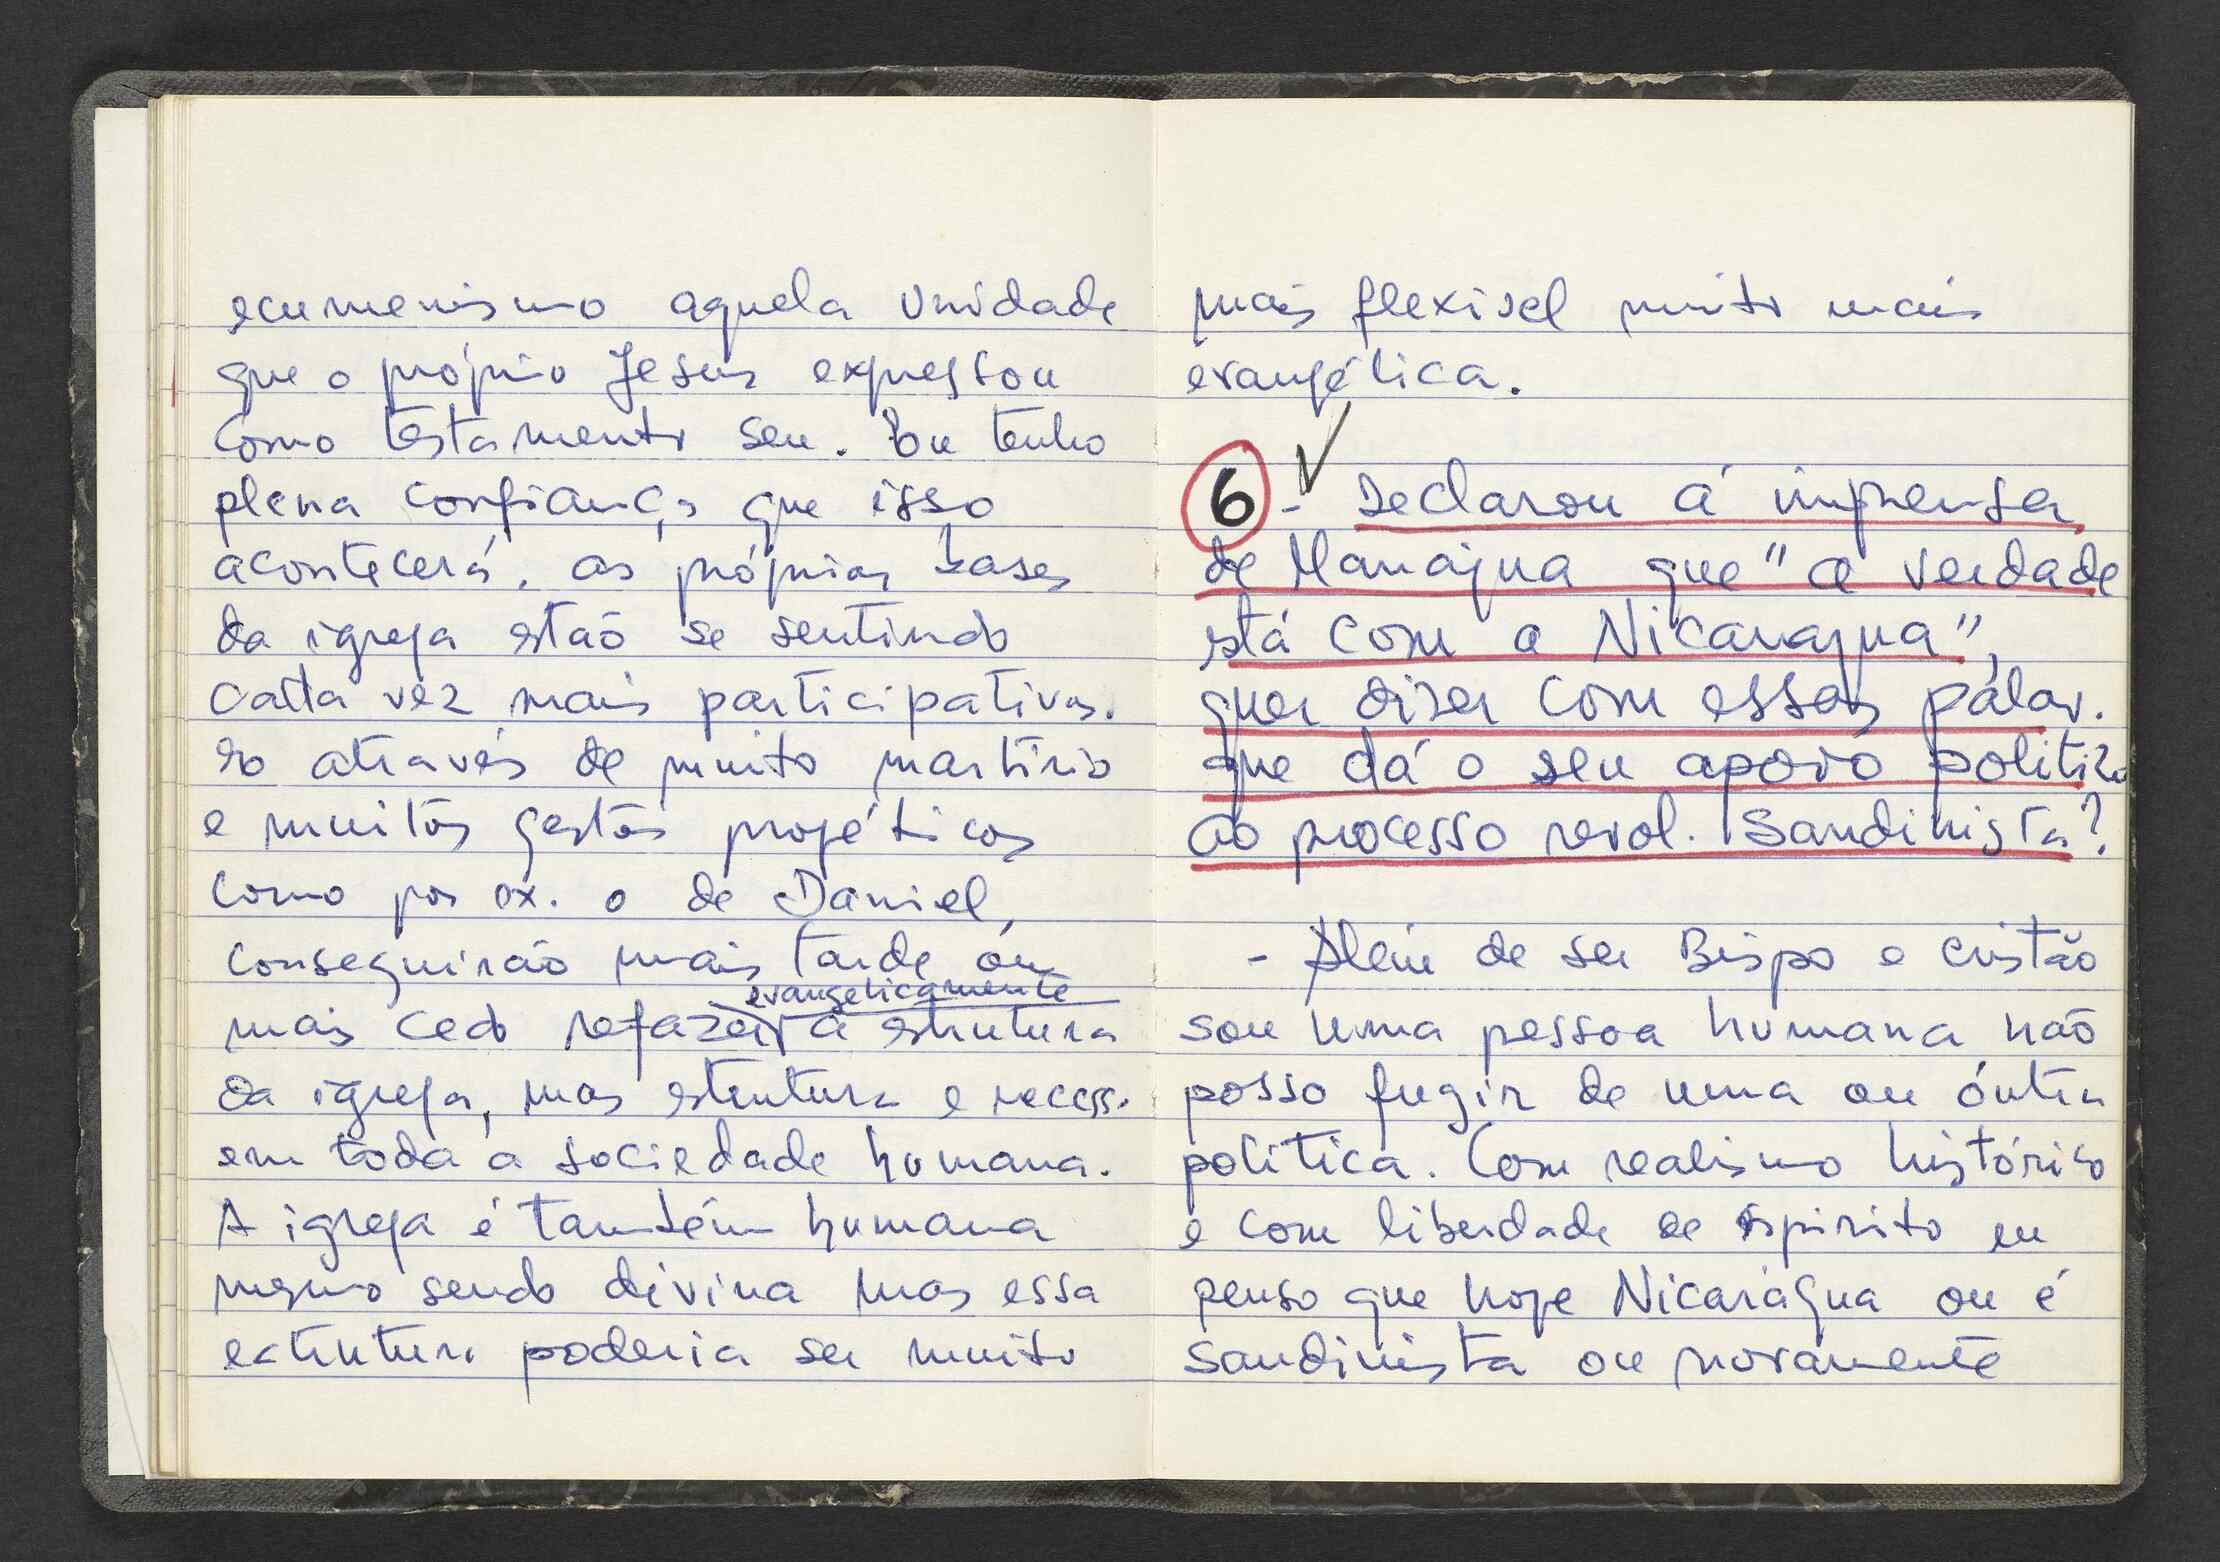 ecumenismo aquela unidade
que o próprio Jesus expressou
como testamento seu. Eu tenho
plena confiança que isso
acontecerá. as próprias bases
da igreja estaõ se sentindo
cada vez mais participativas.
Eo através de muito martirio
e muitos gestos proféticos
como por ex. o de Daniel,
conseguirão mais tarde ou
evangelicamente
mais cedo refazer a estrutura
da igreja, mas estrutura e necess.
em toda a sociedade humana.
A igreja é também humana
mesmo sendo divina mas essa
estrutura poderia ser muito
mais flexivel muito mais
evangélica.
6 - Declarou á imprensa
de Managua que "a verdade
está com a Nicaragua",
quer dizer com essas palav.
que dá o seu apoio politico
ao processo revol. Sandinista?
- Além de ser Bispo e cristão
sou uma pessoa humana naõ
posso fugir de uma ou óutra
politica. Com realismo histórico
e com liberdade de espirito eu
penso que hoje Nicarágua ou é
sandinista ou novamente